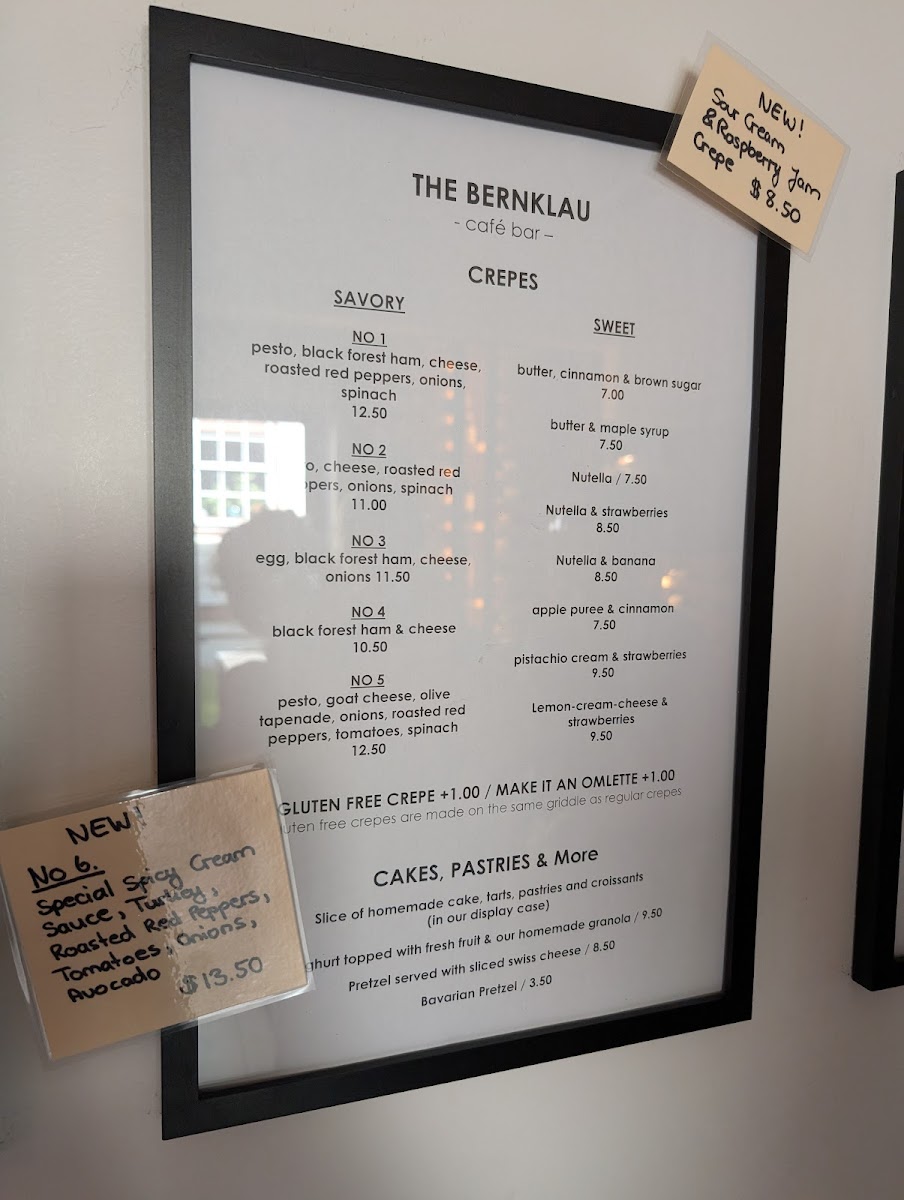 NEW!
Sour Cream
& Raspberry Jam
Crepe $8.50
THE BERNKLAU
- café bar –
CREPES
SAVORY
NO 1
pesto, black forest ham, cheese,
roasted red peppers, onions,
spinach
12.50
NO 2
cheese, roasted red
onions, spinach
11.00
NO 3
egg, black forest ham, cheese,
onions 11.50
NO 4
black forest ham & cheese
10.50
NO 5
pesto, goat cheese, olive
tapenade, onions, roasted red
peppers, tomatoes, spinach
12.50
SWEET
butter, cinnamon & brown sugar
7.00
butter & maple syrup
7.50
Nutella / 7.50
Nutella & strawberries
8.50
Nutella & banana
8.50
apple puree & cinnamon
7.50
pistachio cream & strawberries
9.50
Lemon-cream-cheese &
strawberries
9.50
GLUTEN FREE CREPE +1.00 / MAKE IT AN OMLETTE +1.00
free crepes are made on the same griddle as regular crepes
CAKES, PASTRIES & More
Slice of homemade cake, tarts, pastries and croissants
(in our display case)
topped with fresh fruit & our homemade granola / 9.50
Pretzel served with sliced swiss cheese / 8.50
Bavarian Pretzel / 3.50
NEW!
No 6.
Special Spicy Cream
Sauce, Turkey,
Roasted Red Peppers,
Tomatoes, Onions,
Avocado $13.50